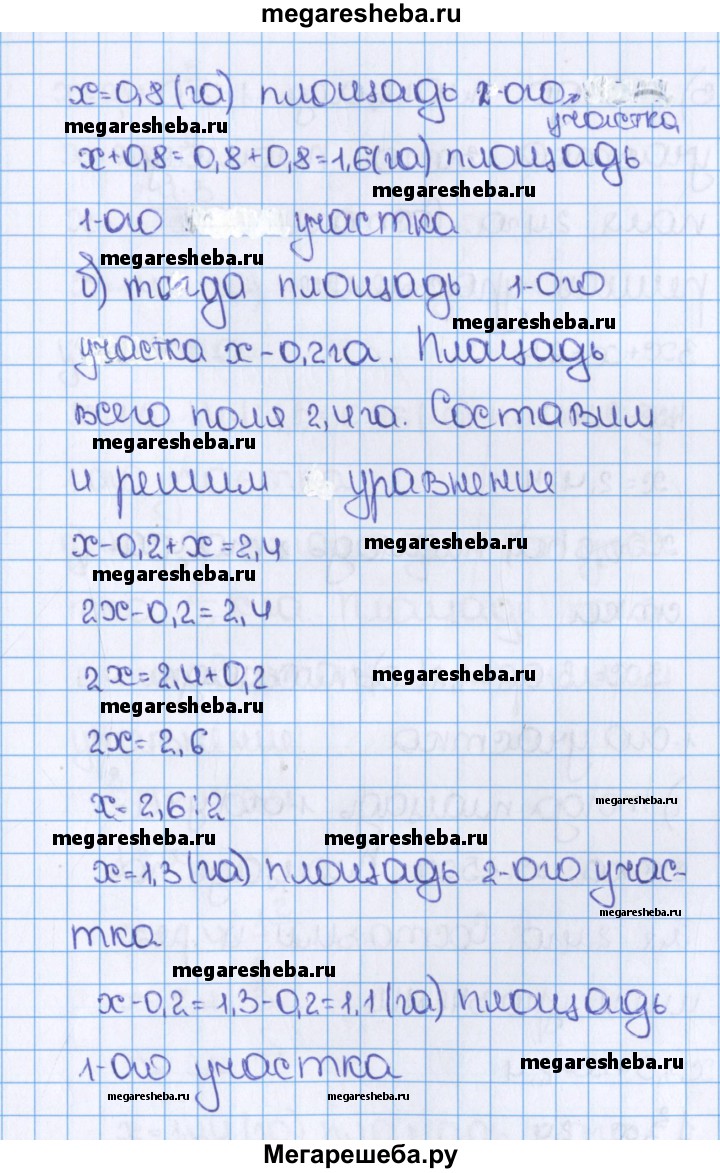 megaresheba.ru
x=0,8 (га) площадь 2-ого
участка
megaresheba.ru
x+0,8=0,8+0,8=1,6(га) площадь
megaresheba.ru
1-ого участка
megaresheba.ru
б) тогда площадь 1-ого
megaresheba.ru
участка x-0,2га. Площадь
всего поля 2,4га. Составим
megaresheba.ru
и решим уравнение
x-0,2+x=2,4
megaresheba.ru
megaresheba.ru
2x-0,2=2,4
2x=2,4+0,2
megaresheba.ru
megaresheba.ru
2x=2,6
x=2,6:2
megaresheba.ru
megaresheba.ru
megaresheba.ru
x=1,3(га) площадь 2-ого учас-
megaresheba.ru
тка
megaresheba.ru
x-0,2=1,3-0,2=1,1(га) площадь
1-ого участка
megaresheba.ru
megaresheba.ru
megaresheba.ru
Мегарешеба.ру